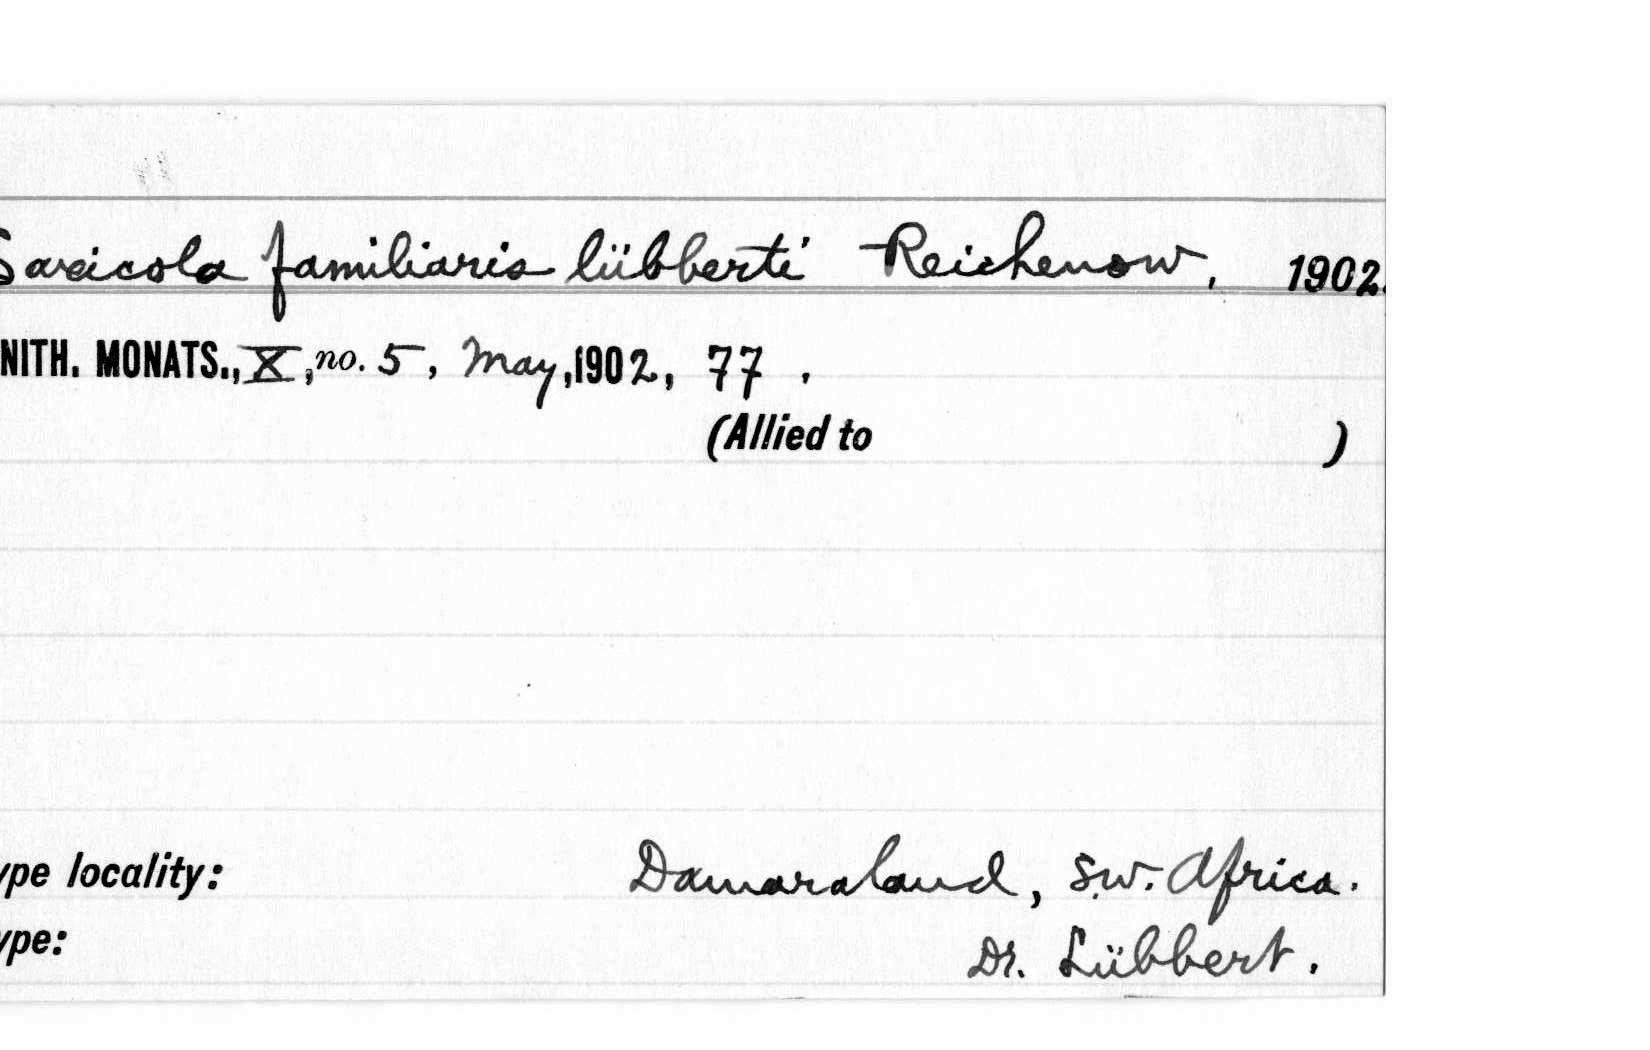 Saxicola familiaris lübberti Reichenow, 1902.
NITH. MONATS., X, no. 5, May, 1902, 77.
(Allied to )
ype locality: Damaraland, sw. Africa.
ype: Dr. Lübbert.